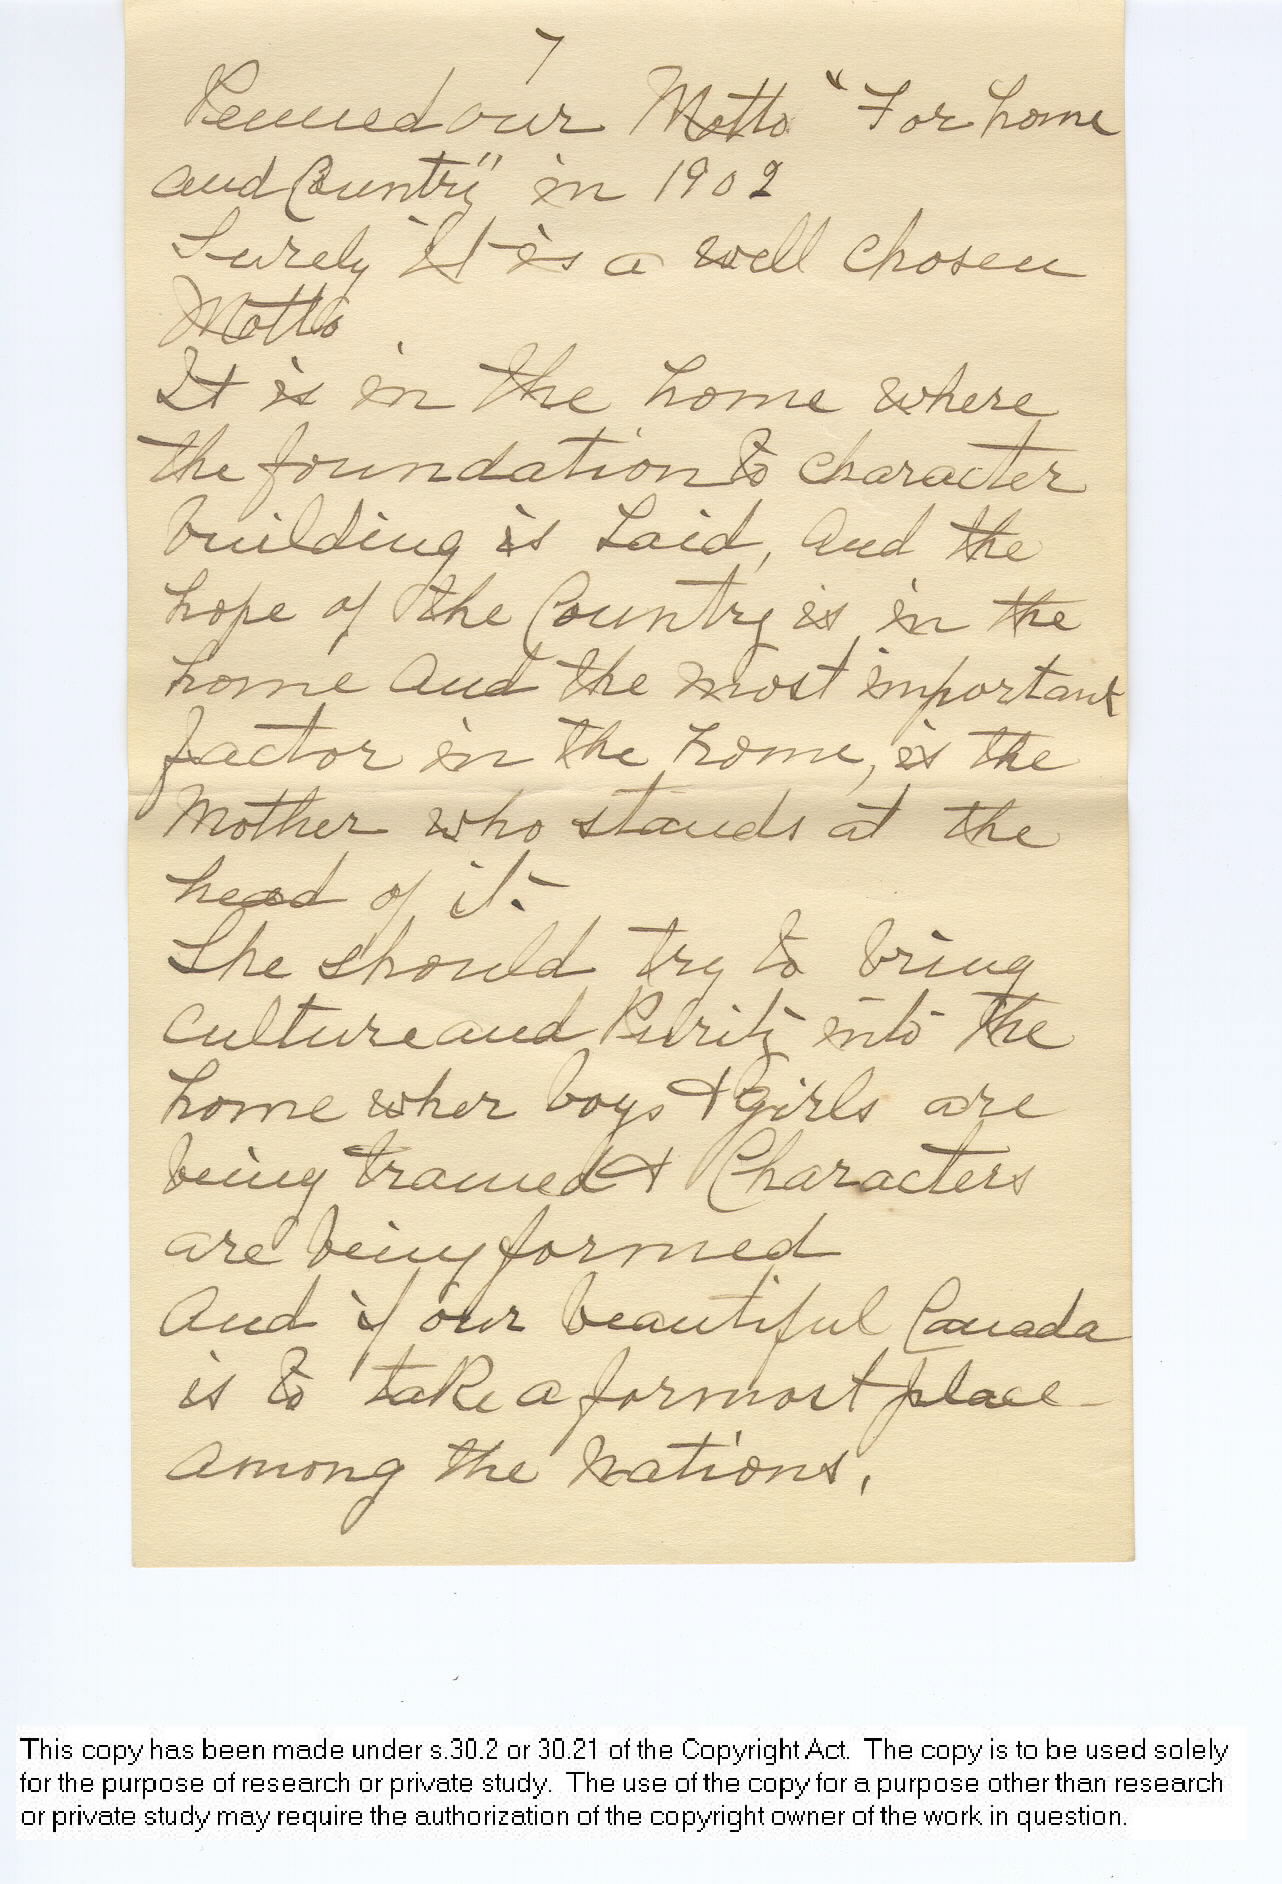 7
Penned our Motto "For home
and Country" in 1902
Surely it is a well chosen
Motto
It is in the home where
the foundation to character
building is laid, and the
hope of the Country is in the
home and the most important
factor in the home, is the
Mother who stands at the
head of it.
She should try to bring
culture and Purity into the
home wher boys & girls are
being trained & Characters
are being formed
And if our beautiful Canada
is to take a formost place
among the Nations,
This copy has been made under s.30.2 or 30.21 of the Copyright Act. The copy is to be used solely
for the purpose of research or private study. The use of the copy for a purpose other than research
or private study may require the authorization of the copyright owner of the work in question.